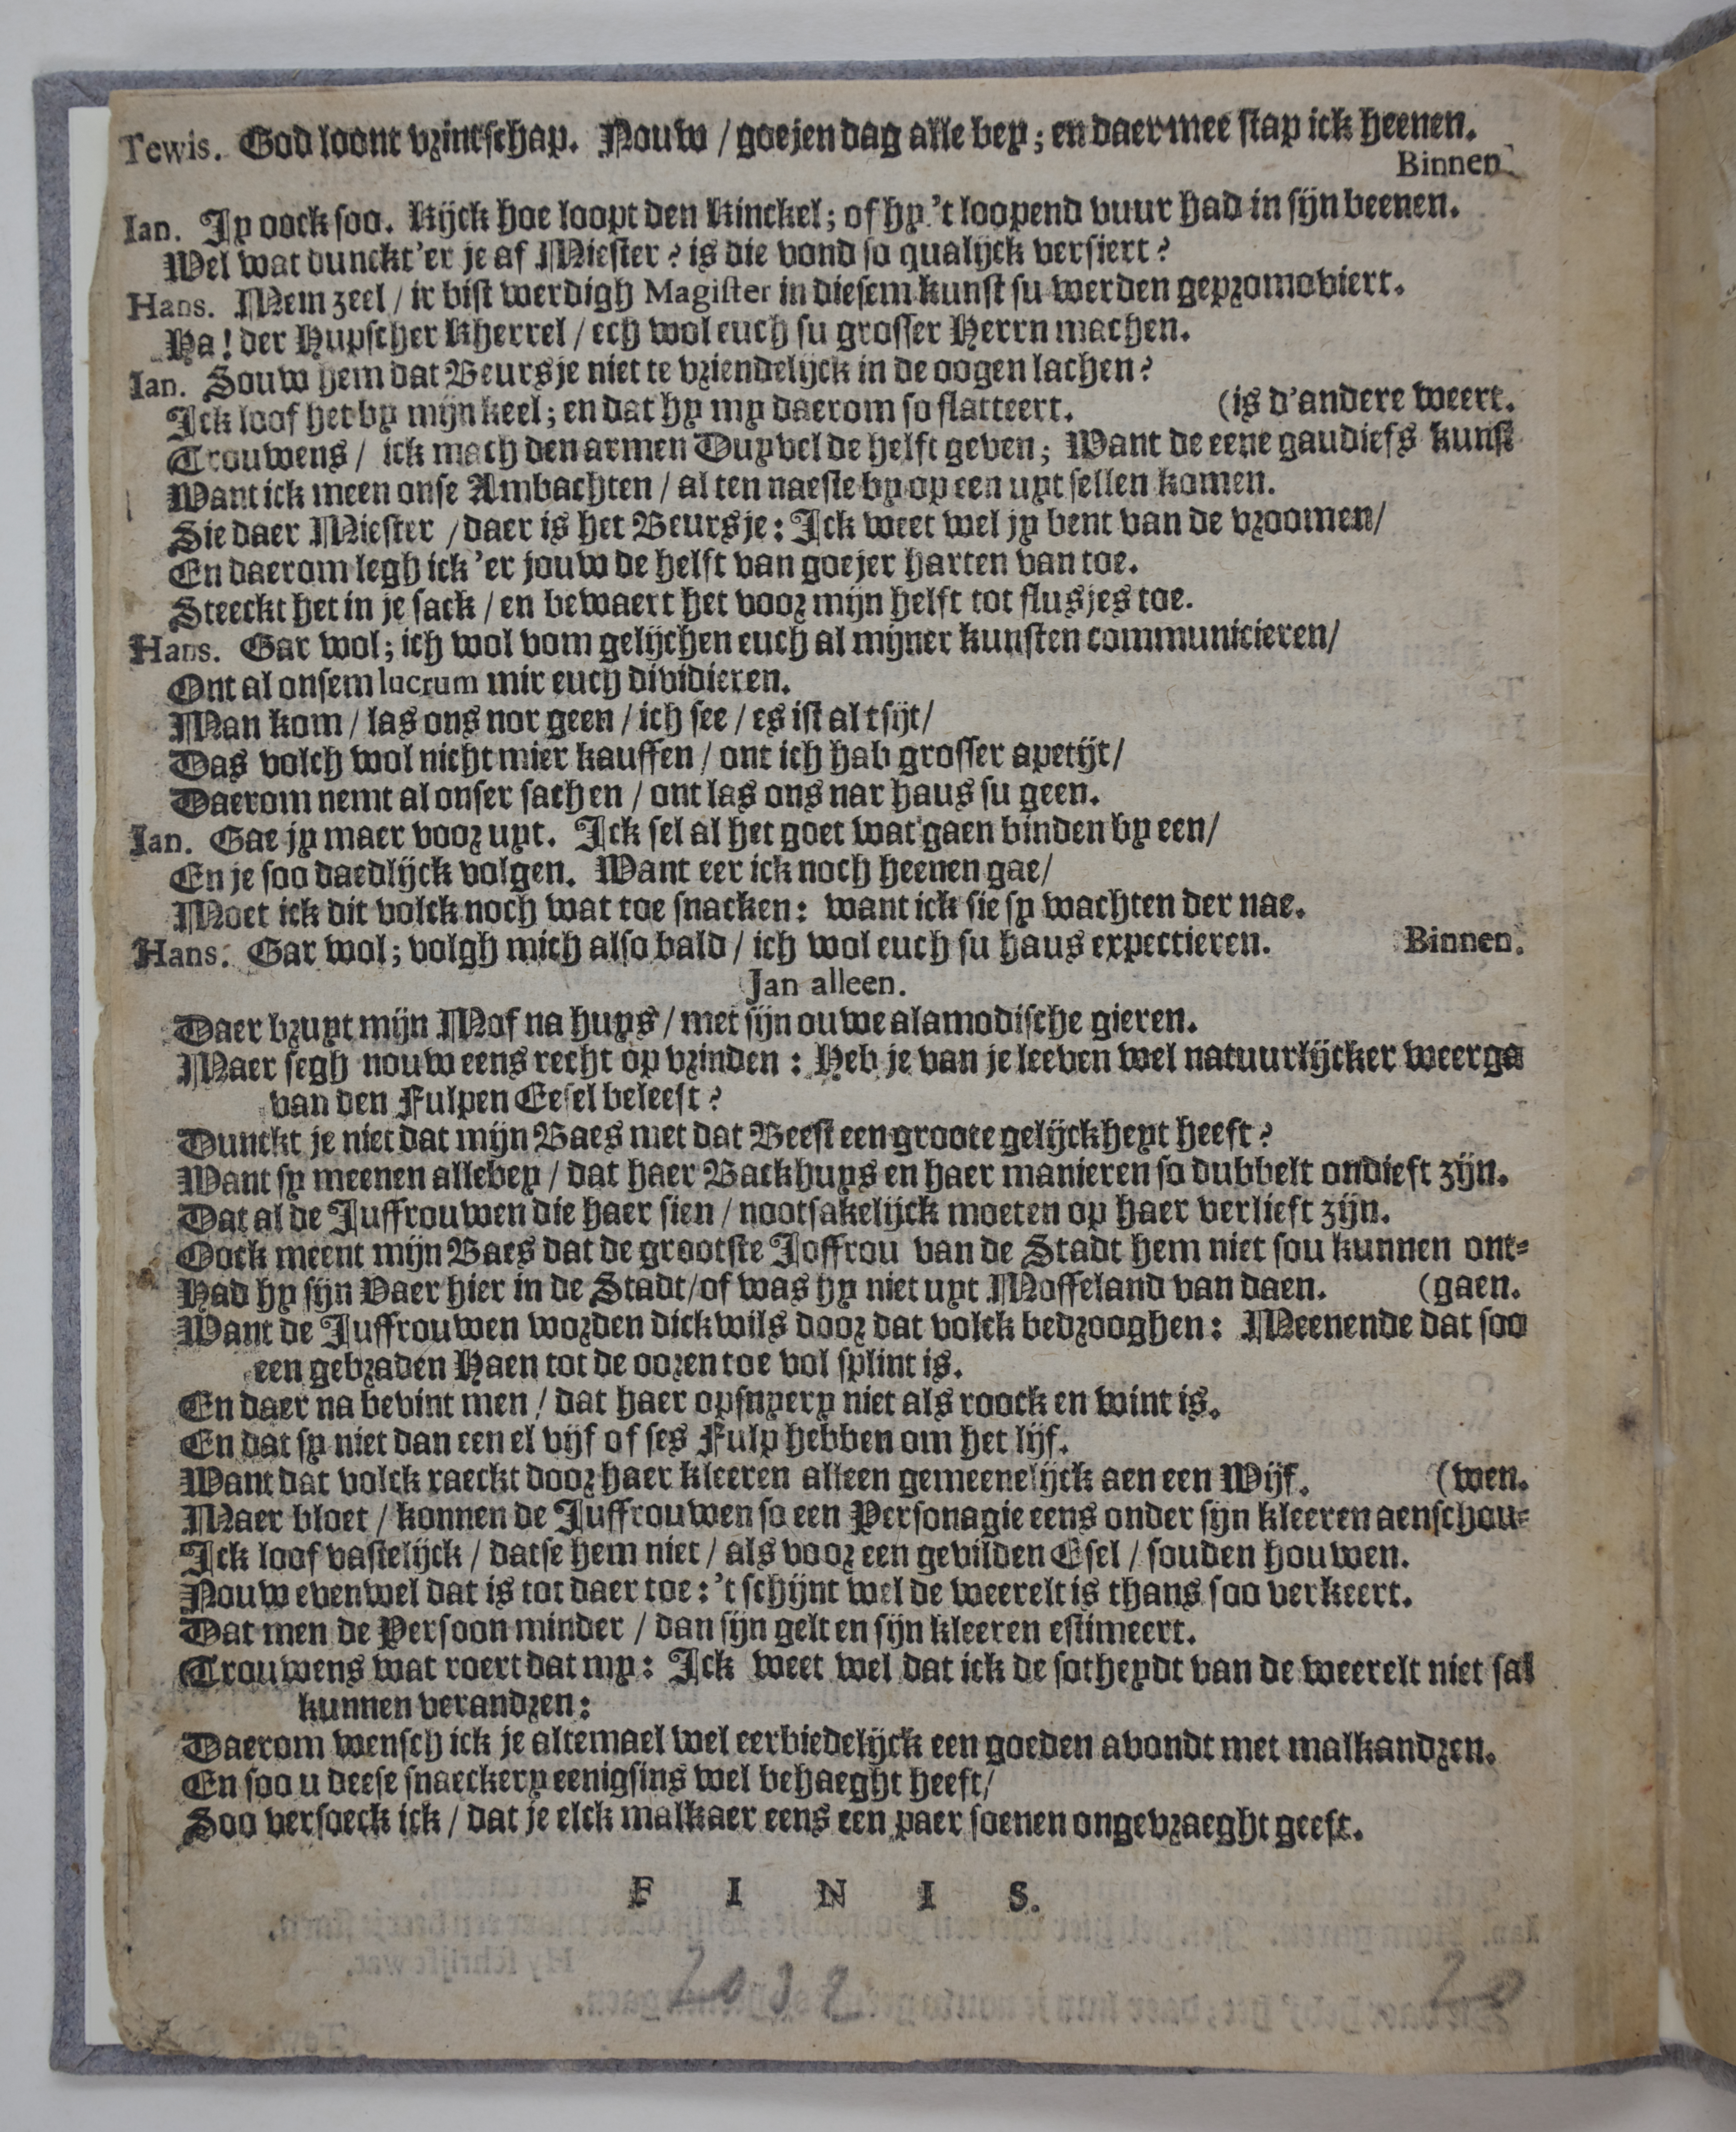 Tewis. God loont vrintschap. Nouw / goejen dag alle bey; en daer mee stap ick heenen.
Binnen.
Ian. Jy oock soo. Kijck hoe loopt den Kinckel; of hy 't loopend vuur had in sijn beenen.
Wel wat dunckt'er je af Miester? is die vond so qualijck versiert?
Hans. Mem zeel / ir bist werdigh Magister in diesem kunst su werden gepromoviert.
Ha! der Hupscher Kherrel / ech wol euch su grosser Herrn machen.
Ian. Souw hem dat Beursje niet te vriendelijck in de oogen lachen?
Ick loof het by mijn keel; en dat hy my daerom so flatteert. (is d'andere weert.
Trouwens / ick mach den armen Duyvel de helft geven; Want de eene gaudiefs kunst
Want ick meen onse Ambachten / al ten naeste by op een uyt sellen komen.
Sie daer Miester / daer is het Beursje: Ick weet wel jy bent van de vroomen/
En daerom legh ick 'er jouw de helft van goejer harten van toe.
Steeckt het in je sack / en bewaert het voor mijn helft tot flusjes toe.
Hans. Gar wol; ich wol vom gelijchen euch al mijner kunsten communicieren/
Ont al onsem lucrum mir euch dividieren.
Man kom / las ons nor geen / ich see / es ist al tsijt/
Das volch wol nicht mier kauffen / ont ich hab grosser apetijt/
Daerom nemt al onser sachen / ont las ons nar haus su geen.
Ian. Gae jy maer voor uyt. Ick sel al het goet wat gaen binden by een/
En je soo daedlijck volgen. Want eer ick noch heenen gae/
Moet ick dit volck noch wat toe snacken: want ick sie sy wachten der nae.
Hans. Gar wol; volgh mich also bald / ich wol euch su haus expectieren. Binnen.
Jan alleen.
Daer bruyt mijn Mof na huys / met sijn ouwe alamodische gieren.
Maer segh nouw eens recht op vrinden: Heb je van je leeven wel natuurlijcker weerga
van den Fulpen Eesel beleest?
Dunckt je niet dat mijn Baes met dat Beest een groote gelijckheyt heeft?
Want sy meenen allebey / dat haer Backhuys en haer manieren so dubbelt ondieft zijn.
Dat al de Juffrouwen die haer sien / nootsakelijck moeten op haer verlieft zijn.
Oock meent mijn Baes dat de grootste Joffrou van de Stadt hem niet sou kunnen ont-
Had hy sijn Vaer hier in de Stadt / of was hy niet uyt Moffeland van daen. (gaen.
Want de Juffrouwen worden dickwils door dat volck bedrooghen: Meenende dat soo
een gebraden Haen tot de ooren toe vol splint is.
En daer na bevint men / dat haer opsnyery niet als roock en wint is.
En dat sy niet dan een el vijf of ses Fulp hebben om het lijf.
Want dat volck raeckt door haer kleeren alleen gemeenelijck aen een Wijf. (wen.
Maer bloet / konnen de Juffrouwen so een Personagie eens onder sijn kleeren aenschou-
Ick loof vastelijck / datse hem niet / als voor een gevilden Esel / souden houwen.
Nouw evenwel dat is tot daer toe: 't schijnt wel de weerelt is thans soo verkeert.
Dat men de Persoon minder / dan sijn gelt en sijn kleeren estimeert.
Trouwens wat roert dat my: Ick weet wel dat ick de sotheydt van de weerelt niet sal
kunnen verandren:
Daerom wensch ick je altemael wel eerbiedelijck een goeden avondt met malkandren.
En soo u deese snaeckery eenigsins wel behaeght heeft/
Soo versoeck ick / dat je elck malkaer eens een paer soenen ongevraeght geeft.
F I N I S.
20